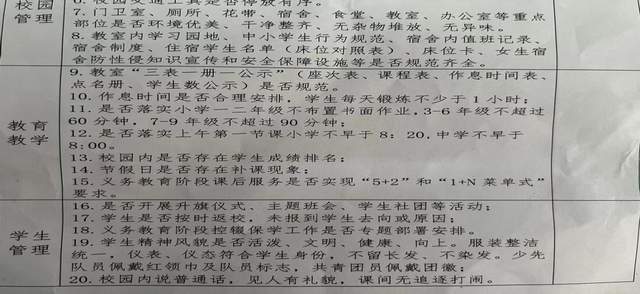 校园
管理
6. 校园交通工具是否停放有序。
7. 门卫室、厕所、花带、宿舍、食堂、教室、办公室等重点
部位是否环境优美、干净整齐、无杂物堆放、无异味。
8. 教室内学习园地、中小学生行为规范、宿舍内值班记录、
宿舍制度、住宿学生名单（床位对照表）、床位卡、女生宿
舍防性侵知识宣传和安全保障设施等是否规范齐全。
教育
教学
9. 教室“三表一册一公示”（座次表、课程表、作息时间表、
点名册、学生数公示）是否规范。
10. 作息时间是否合理安排，学生每天锻炼不少于 1 小时；
11. 是否落实小学一二年级不布置书面作业,3-6 年级不超过
60 分钟，7-9 年级不超过 90 分钟；
12. 是否落实上午第一节课小学不早于 8：20,中学不早于
8:00。
13. 校园内是否存在学生成绩排名；
14. 节假日是否存在补课现象；
15. 义务教育阶段课后服务是否实现“5+2”和“1+N 菜单式”
要求。
学生
管理
16. 是否开展升旗仪式、主题班会、学生社团等活动；
17. 学生是否按时返校，未报到学生去向或原因；
18. 义务教育阶段控辍保学工作是否专题部署安排。
19. 学生精神风貌是否活泼、文明、健康、向上。服装整洁
统一，仪表、仪态符合学生身份，不留长发、不染发。少先
队员佩戴红领巾及队员标志，共青团员佩戴团徽；
20. 校园内说普通话，见人有礼貌，课间无追逐打闹。